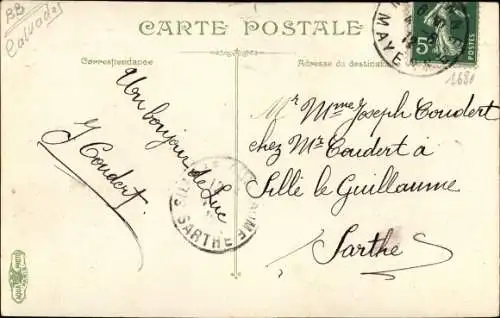 BB
Calvados
CARTE POSTALE
Correspondance
Adresse du destinataire
5c
POSTES
MAYENNE
1680
Un bonjour de Luc
J Coudert
Mr Mme Joseph Coudert
chez Mr Coudert a
Sillé le Guillaume
Sarthe
SARTHE
AQUA PHOTO
PARIS